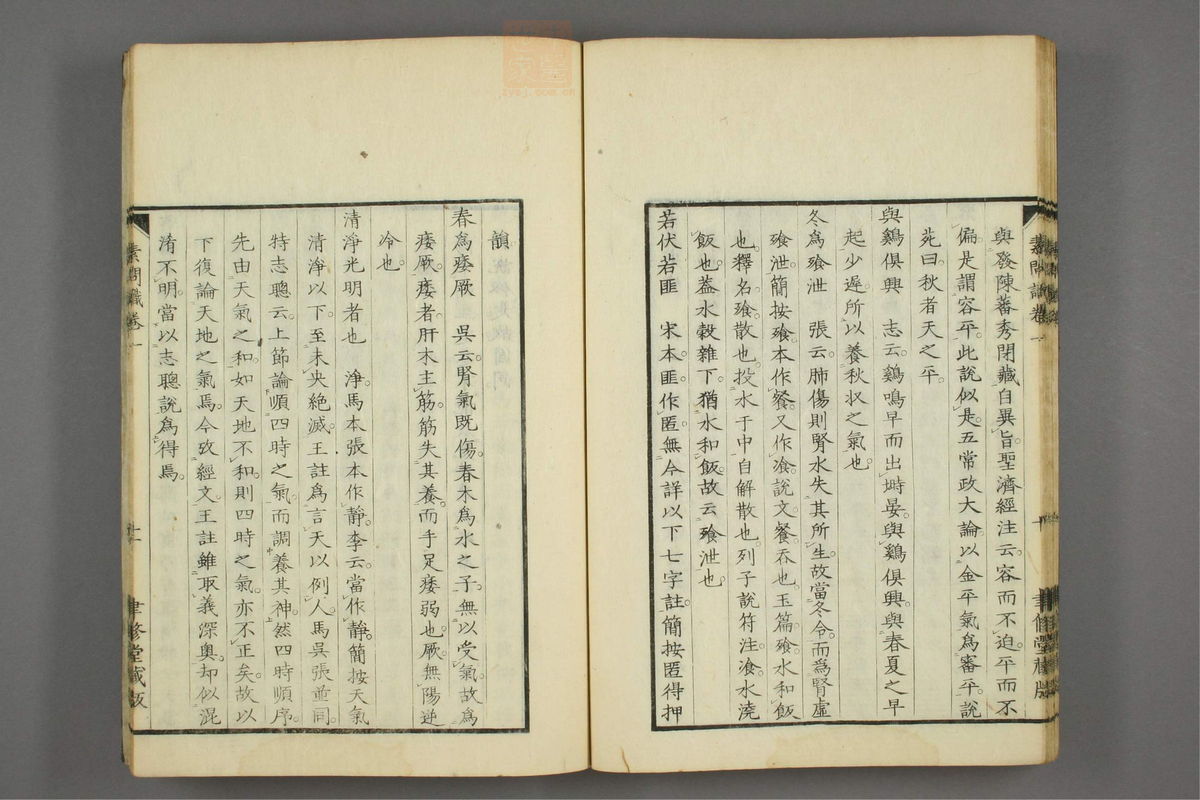 與發陳蕃秀閉藏自異旨聖濟經注云容而不迫平而不
偏是謂容平此說似是五常政大論以金平氣爲審平說
苑曰秋者天之平
與鷄俱興　志云鷄鳴早而出塒晏與鷄俱興與春夏之早
起少遲所以養秋收之氣也
冬爲飱泄　張云肺傷則腎水失其所生故當冬令而爲腎虛
飱泄簡按飱本作餐又作飡說文餐吞也玉篇飱水和飯
也釋名飱散也投水于中自解散也列子說符注飡水澆
飯也蓋水穀雜下猶水和飯故云飱泄也
若伏若匪　宋本匪作匿無今詳以下七字註簡按匿得押
素問識卷一
十
聿修堂藏版
韻
春爲痿厥　吳云腎氣既傷春木爲水之子無以受氣故爲
痿厥痿者肝木主筋筋失其養而手足痿弱也厥無陽逆
冷也
清淨光明者也　淨馬本張本作靜李云當作靜簡按天氣
清淨以下至未央絶滅王註爲言天以例人馬吳張並同
特志聰云上節論順四時之氣而調養其神然四時順序
先由天氣之和如天地不和則四時之氣亦不正矣故以
下復論天地之氣焉今攷經文王註雖取義深奧却似混
淆不明當以志聰說爲得焉
素問識卷一
十一
聿修堂藏版